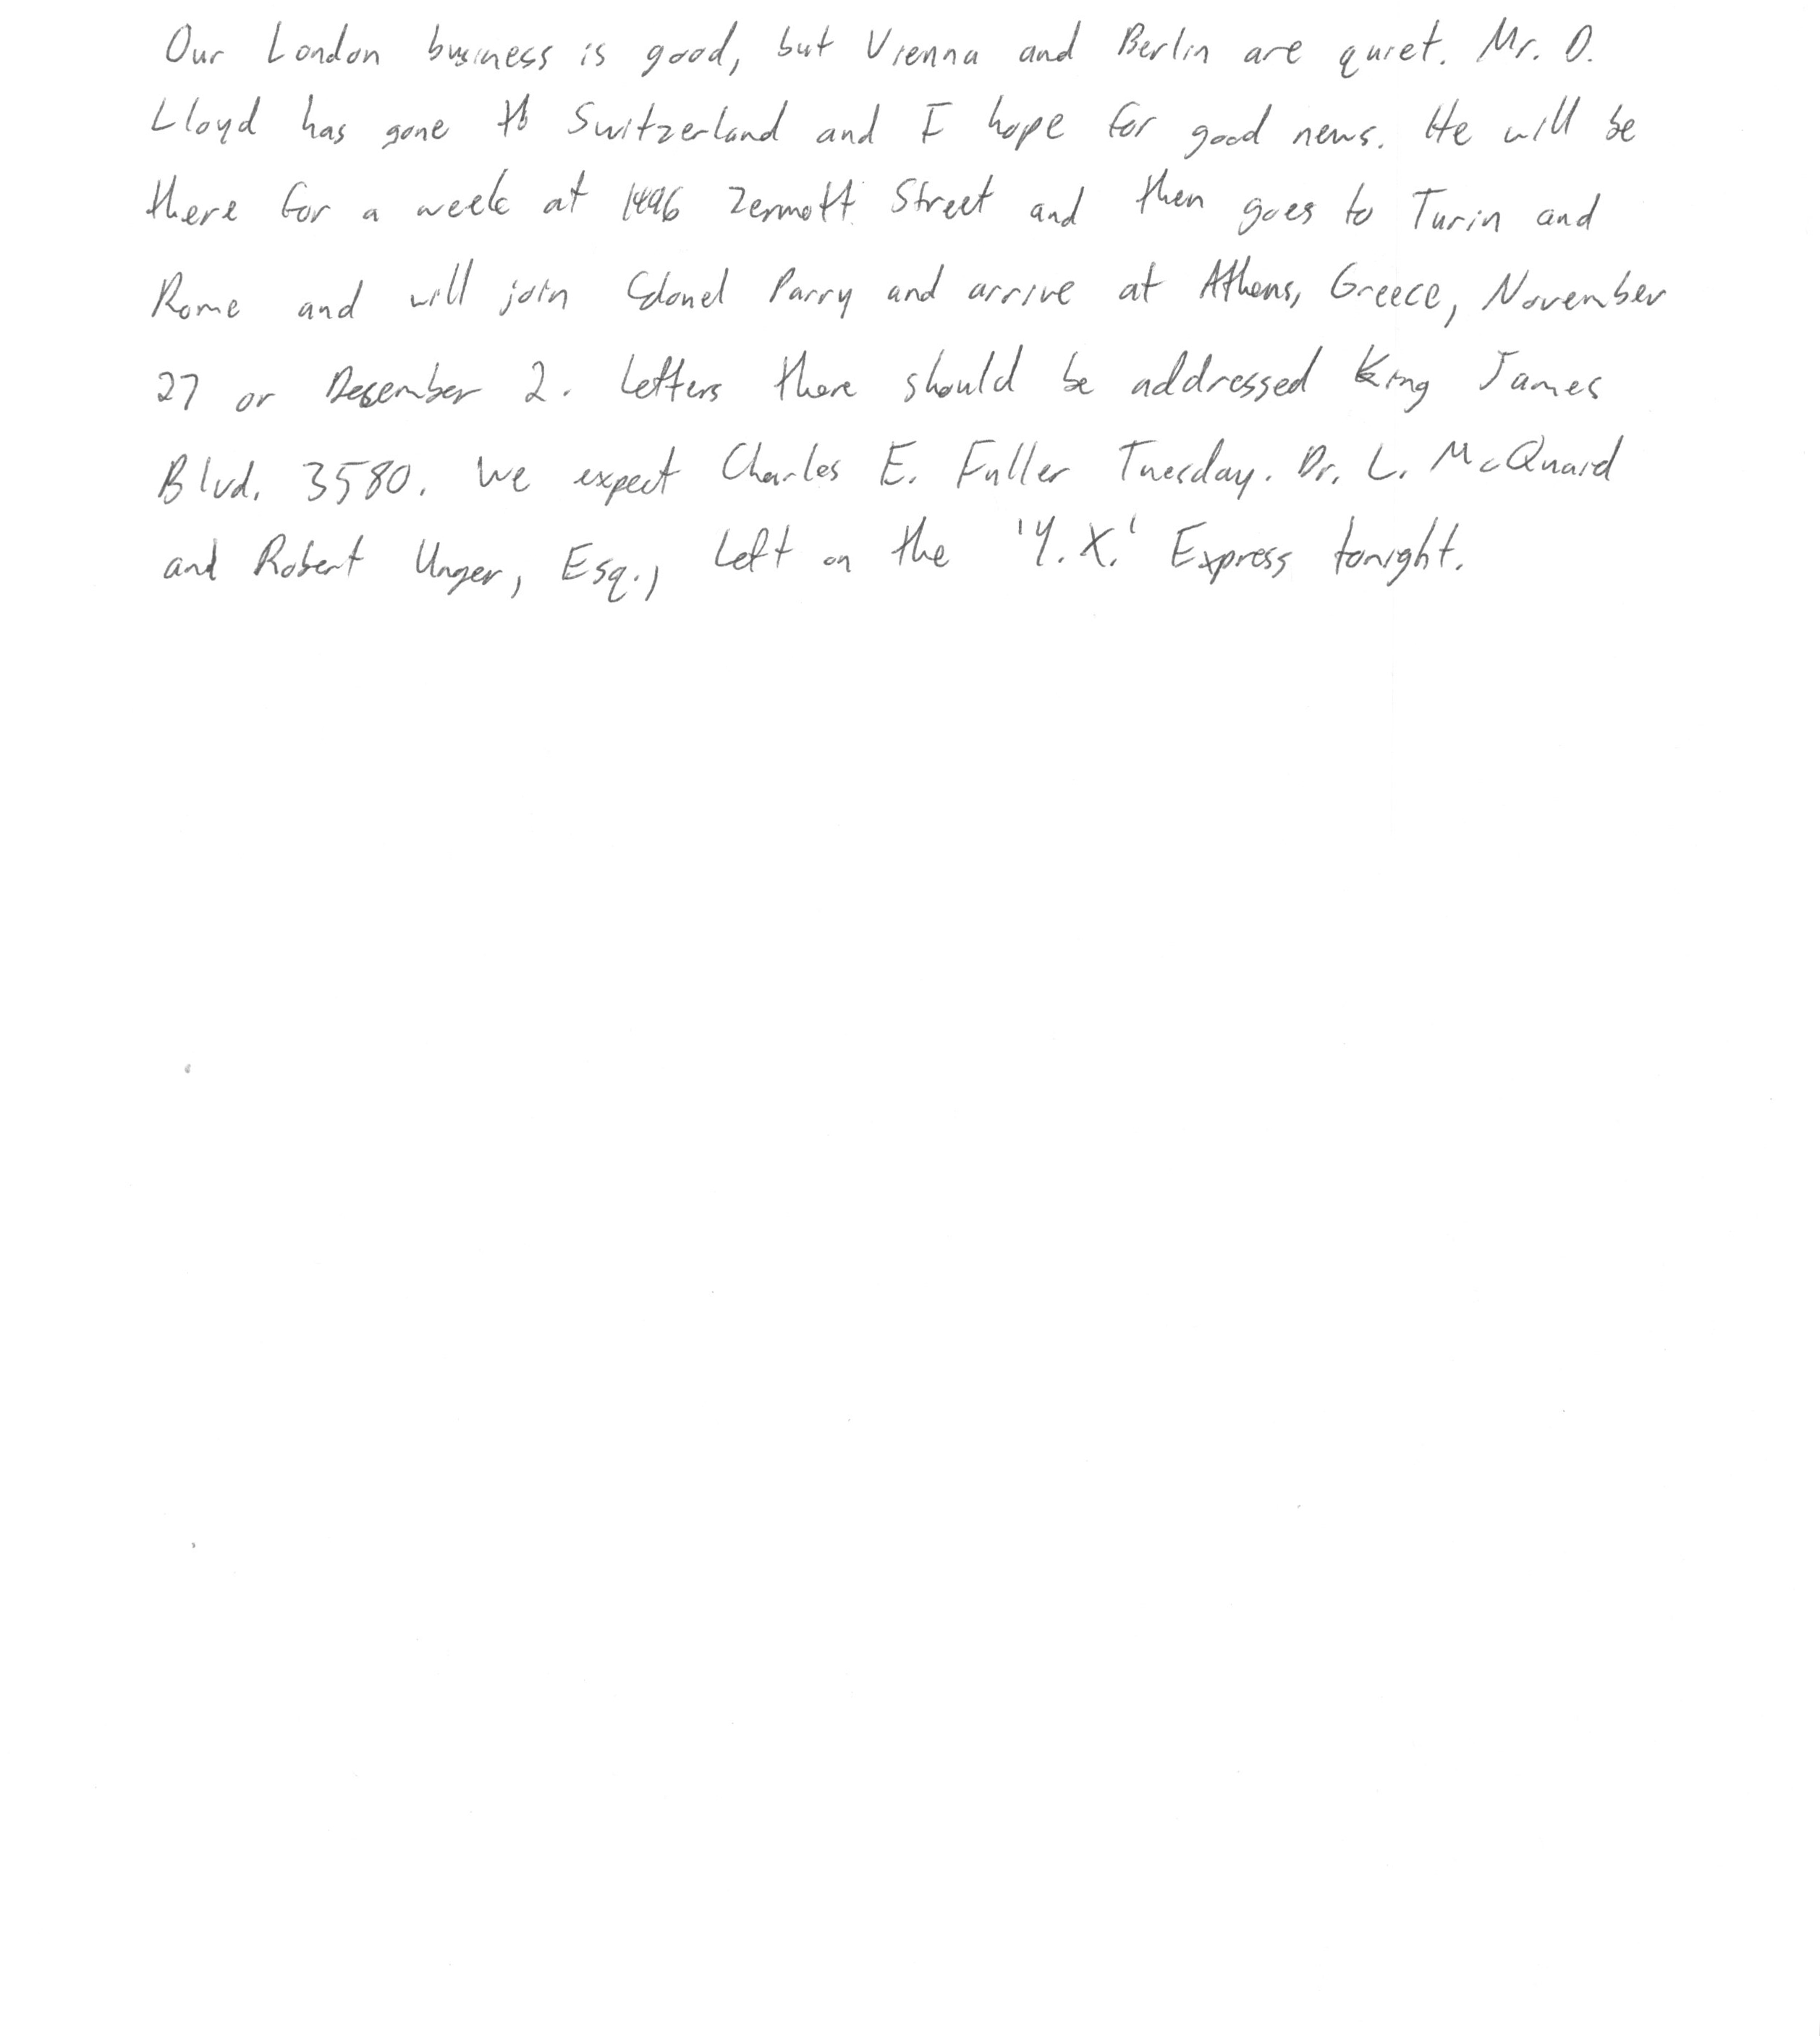 Our London business is good, but Vienna and Berlin are quiet. Mr. D.
Lloyd has gone to Switzerland and I hope for good news. He will be
there for a week at 1496 Zermott Street and then goes to Turin and
Rome and will join Colonel Parry and arrive at Athens, Greece, November
27 or December 2. Letters there should be addressed King James
Blvd. 3580. We expect Charles E. Fuller Tuesday. Dr. L. McQuaid
and Robert Unger, Esq., left on the 'Y.X.' Express tonight.